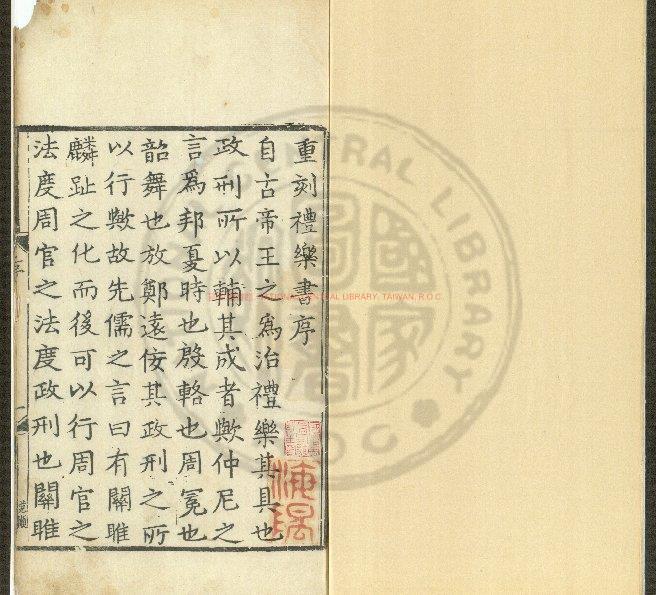 重刻禮樂書序
自古帝王之為治禮樂其具也
政刑所以輔其成者歟仲尼之
言爲邦夏時也殷輅也周冕也
韶舞也放鄭遠佞其政刑之所
以行歟故先儒之言曰有關雎
麟趾之化而後可以行周官之
法度周官之法度政刑也關雎
序
一
NATIONAL CENTRAL LIBRARY, TAIWAN, R.O.C.